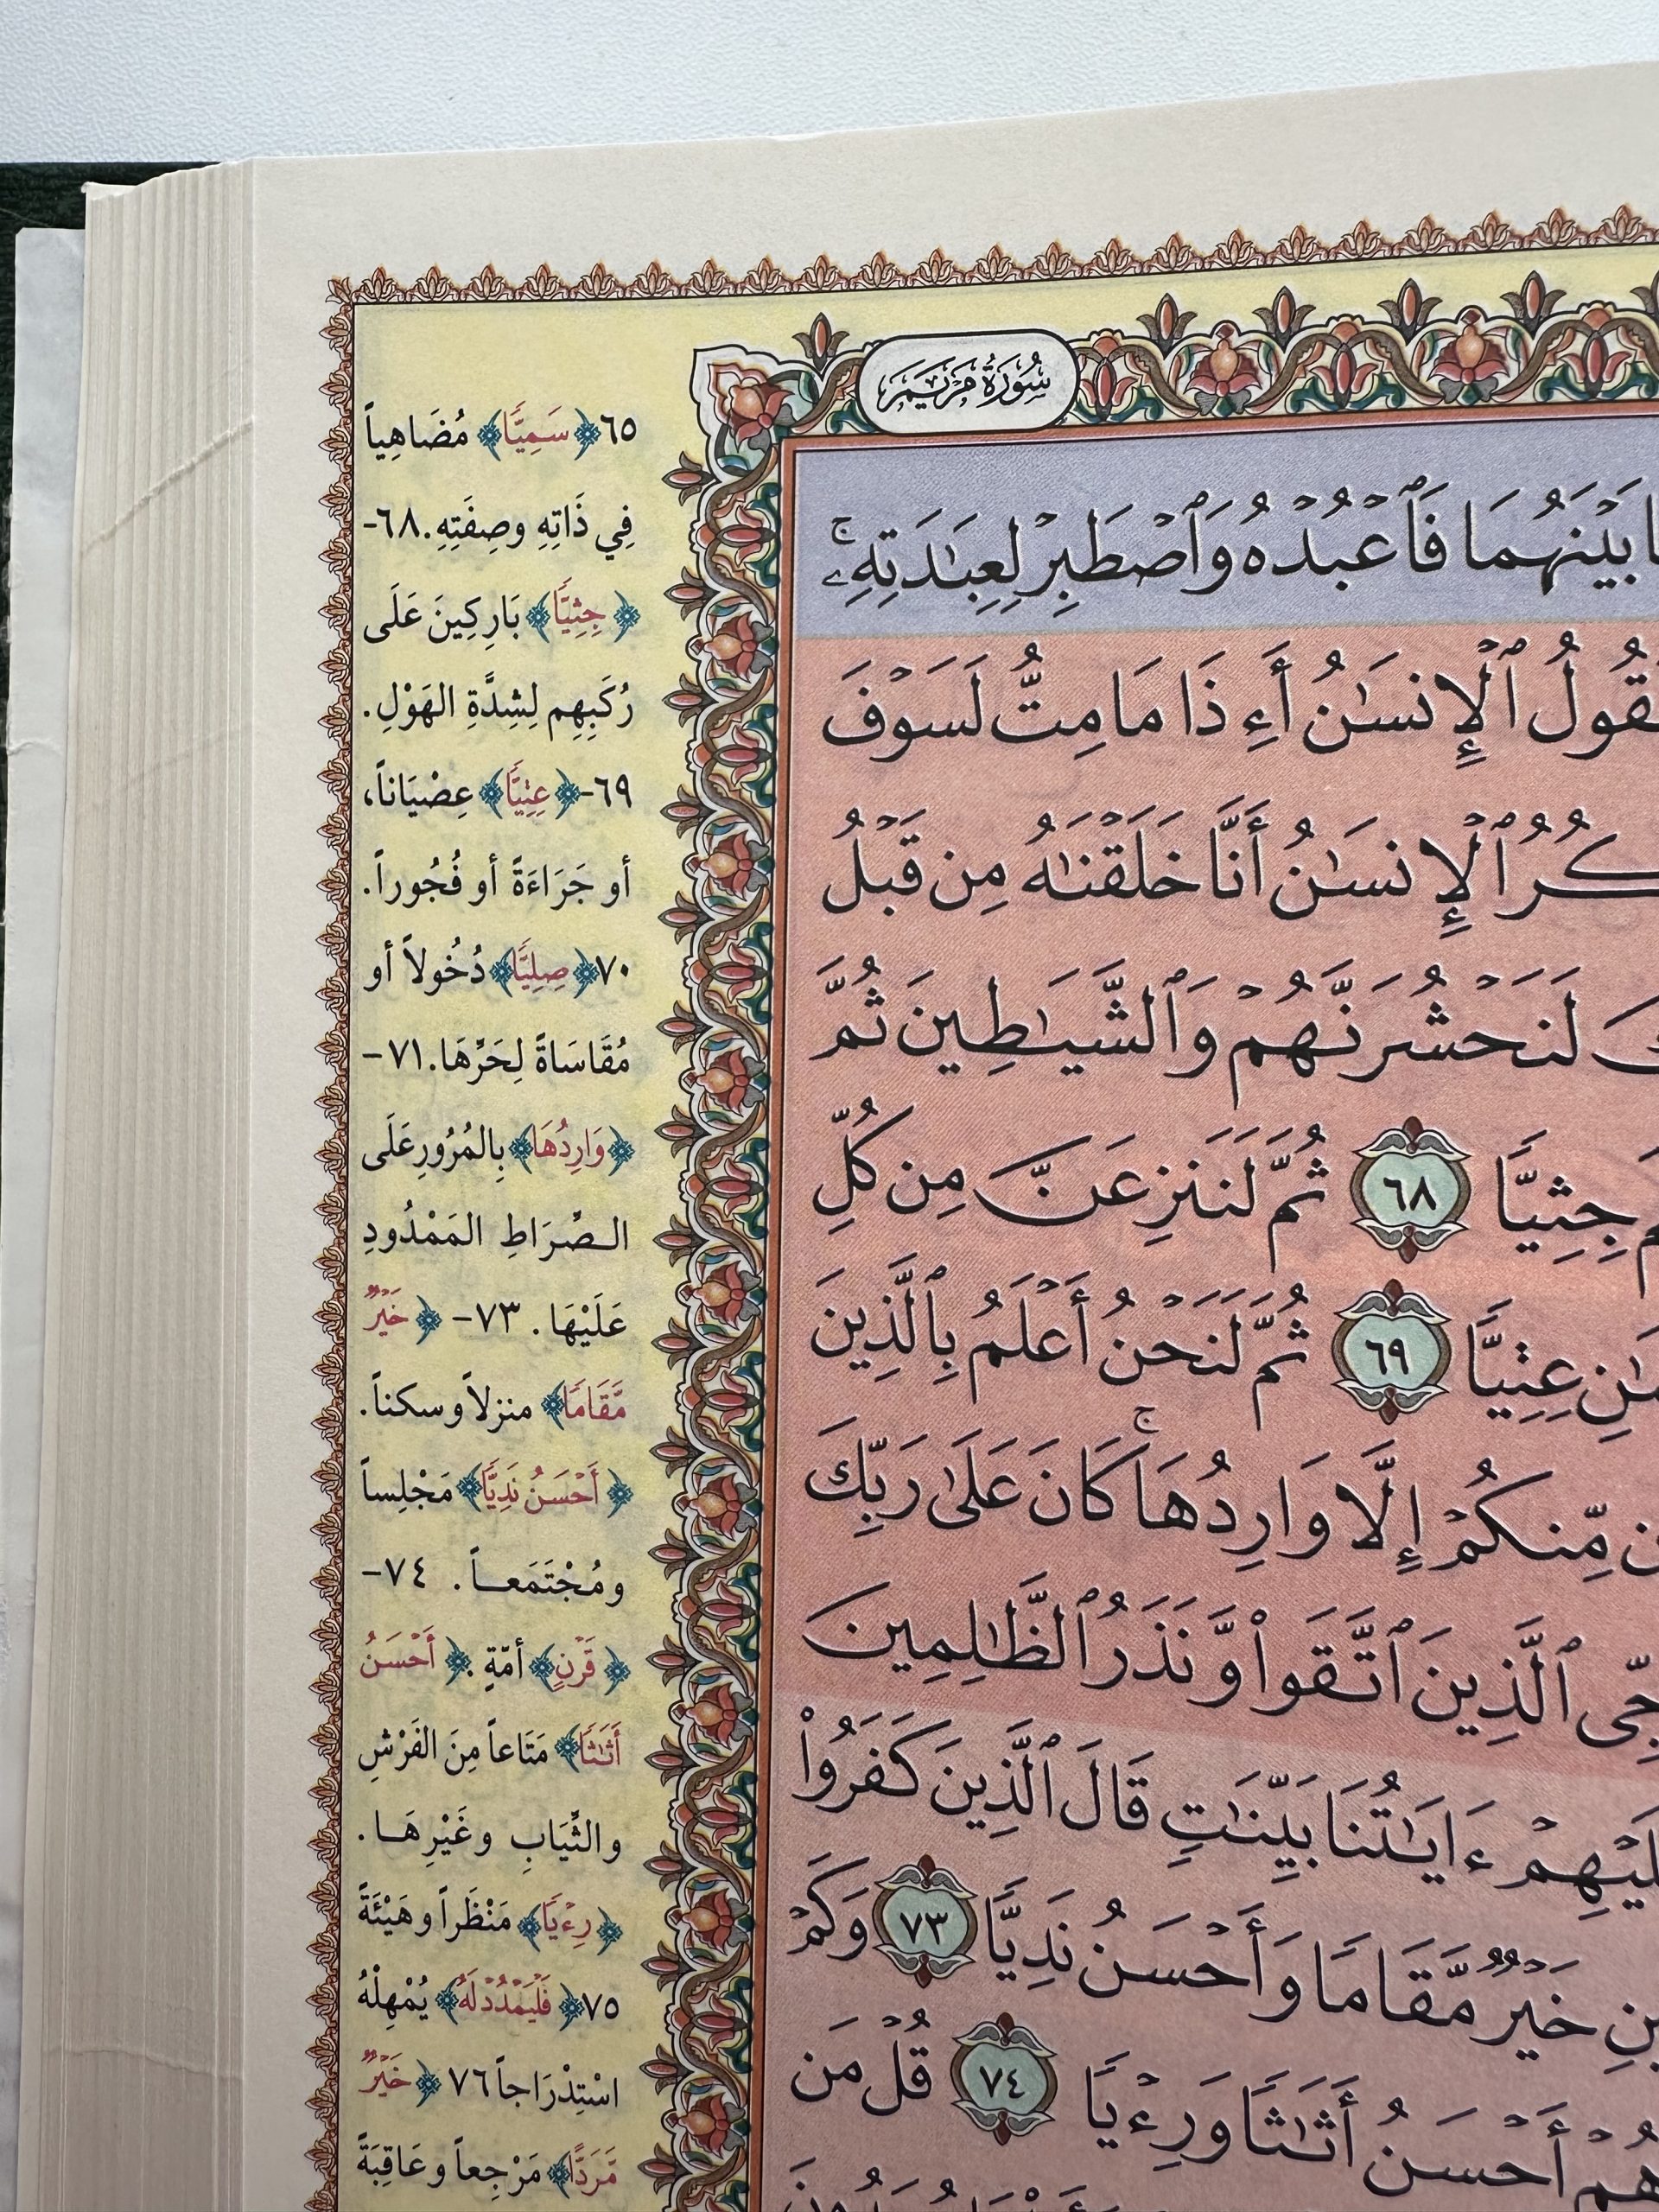 سُورَةُ مَرْيَمَ
بَيْنَهُمَا فَٱعْبُدْهُ وَٱصْطَبِرْ لِعِبَٰدَتِهِۦ ۚ
ٱلْإِنسَٰنُ أَءِذَا مَا مِتُّ لَسَوْفَ
ٱلْإِنسَٰنُ أَنَّا خَلَقْنَٰهُ مِن قَبْلُ
لَنَحْشُرَنَّهُمْ وَٱلشَّيَٰطِينَ ثُمَّ
جِثِيًّا ٦٨ ثُمَّ لَنَنزِعَنَّ مِن كُلِّ
عِتِيًّا ٦٩ ثُمَّ لَنَحْنُ أَعْلَمُ بِٱلَّذِينَ
مِّنكُمْ إِلَّا وَارِدُهَا ۚ كَانَ عَلَىٰ رَبِّكَ
ٱلَّذِينَ ٱتَّقَوا۟ وَّنَذَرُ ٱلظَّٰلِمِينَ
ءَايَٰتُنَا بَيِّنَٰتٍ قَالَ ٱلَّذِينَ كَفَرُوا۟
خَيْرٌ مَّقَامًا وَأَحْسَنُ نَدِيًّا ٧٣ وَكَمْ
أَحْسَنُ أَثَٰثًا وَرِءْيًا ٧٤ قُلْ مَن
٦٥﴿سَمِيًّا﴾ مُضَاهِياً
فِي ذَاتِهِ وصِفَتِهِ.٦٨-
﴿جِثِيًّا﴾ بَارِكِينَ عَلَى
رُكَبِهِم لِشِدَّةِ الهَوْلِ.
٦٩-﴿عِتِيًّا﴾ عِصْيَاناً،
أو جَرَاءَةً أو فُجُوراً.
٧٠﴿صِلِيًّا﴾ دُخُولاً أو
مُقَاسَاةً لِحَرِّهَا.٧١-
﴿وَارِدُهَا﴾ بِالمُرُورِ عَلَى
الصِّرَاطِ المَمْدُودِ
عَلَيْهَا. ٧٣- ﴿خَيْرٌ
مَّقَامًا﴾ منزلاً وسكناً.
﴿أَحْسَنُ نَدِيًّا﴾ مَجْلِساً
ومُجْتَمَعـاً. ٧٤-
﴿قَرْنٍ﴾ أمّةٍ. ﴿أَحْسَنُ
أَثَٰثًا﴾ مَتَاعاً مِنَ الفَرْشِ
والثِّيَابِ وغَيْرِهَـا.
﴿رِءْيًا﴾ مَنْظَراً وهَيْئَةً
٧٥﴿فَلْيَمْدُدْ لَهُ﴾ يُمْهِلْهُ
اسْتِدْرَاجاً ٧٦ ﴿خَيْرٌ
مَّرَدًّا﴾ مَرْجِعاً وعَاقِبَةً